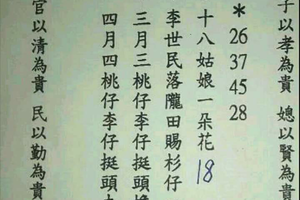 子以孝為貴 媳以賢為貴
* 26 37 45 28
十八姑娘一朵花 18
李世民落隴田賜杉仔
三月三桃仔李仔挺頭
四月四桃仔李仔挺頭
官以清為貴 民以勤為貴